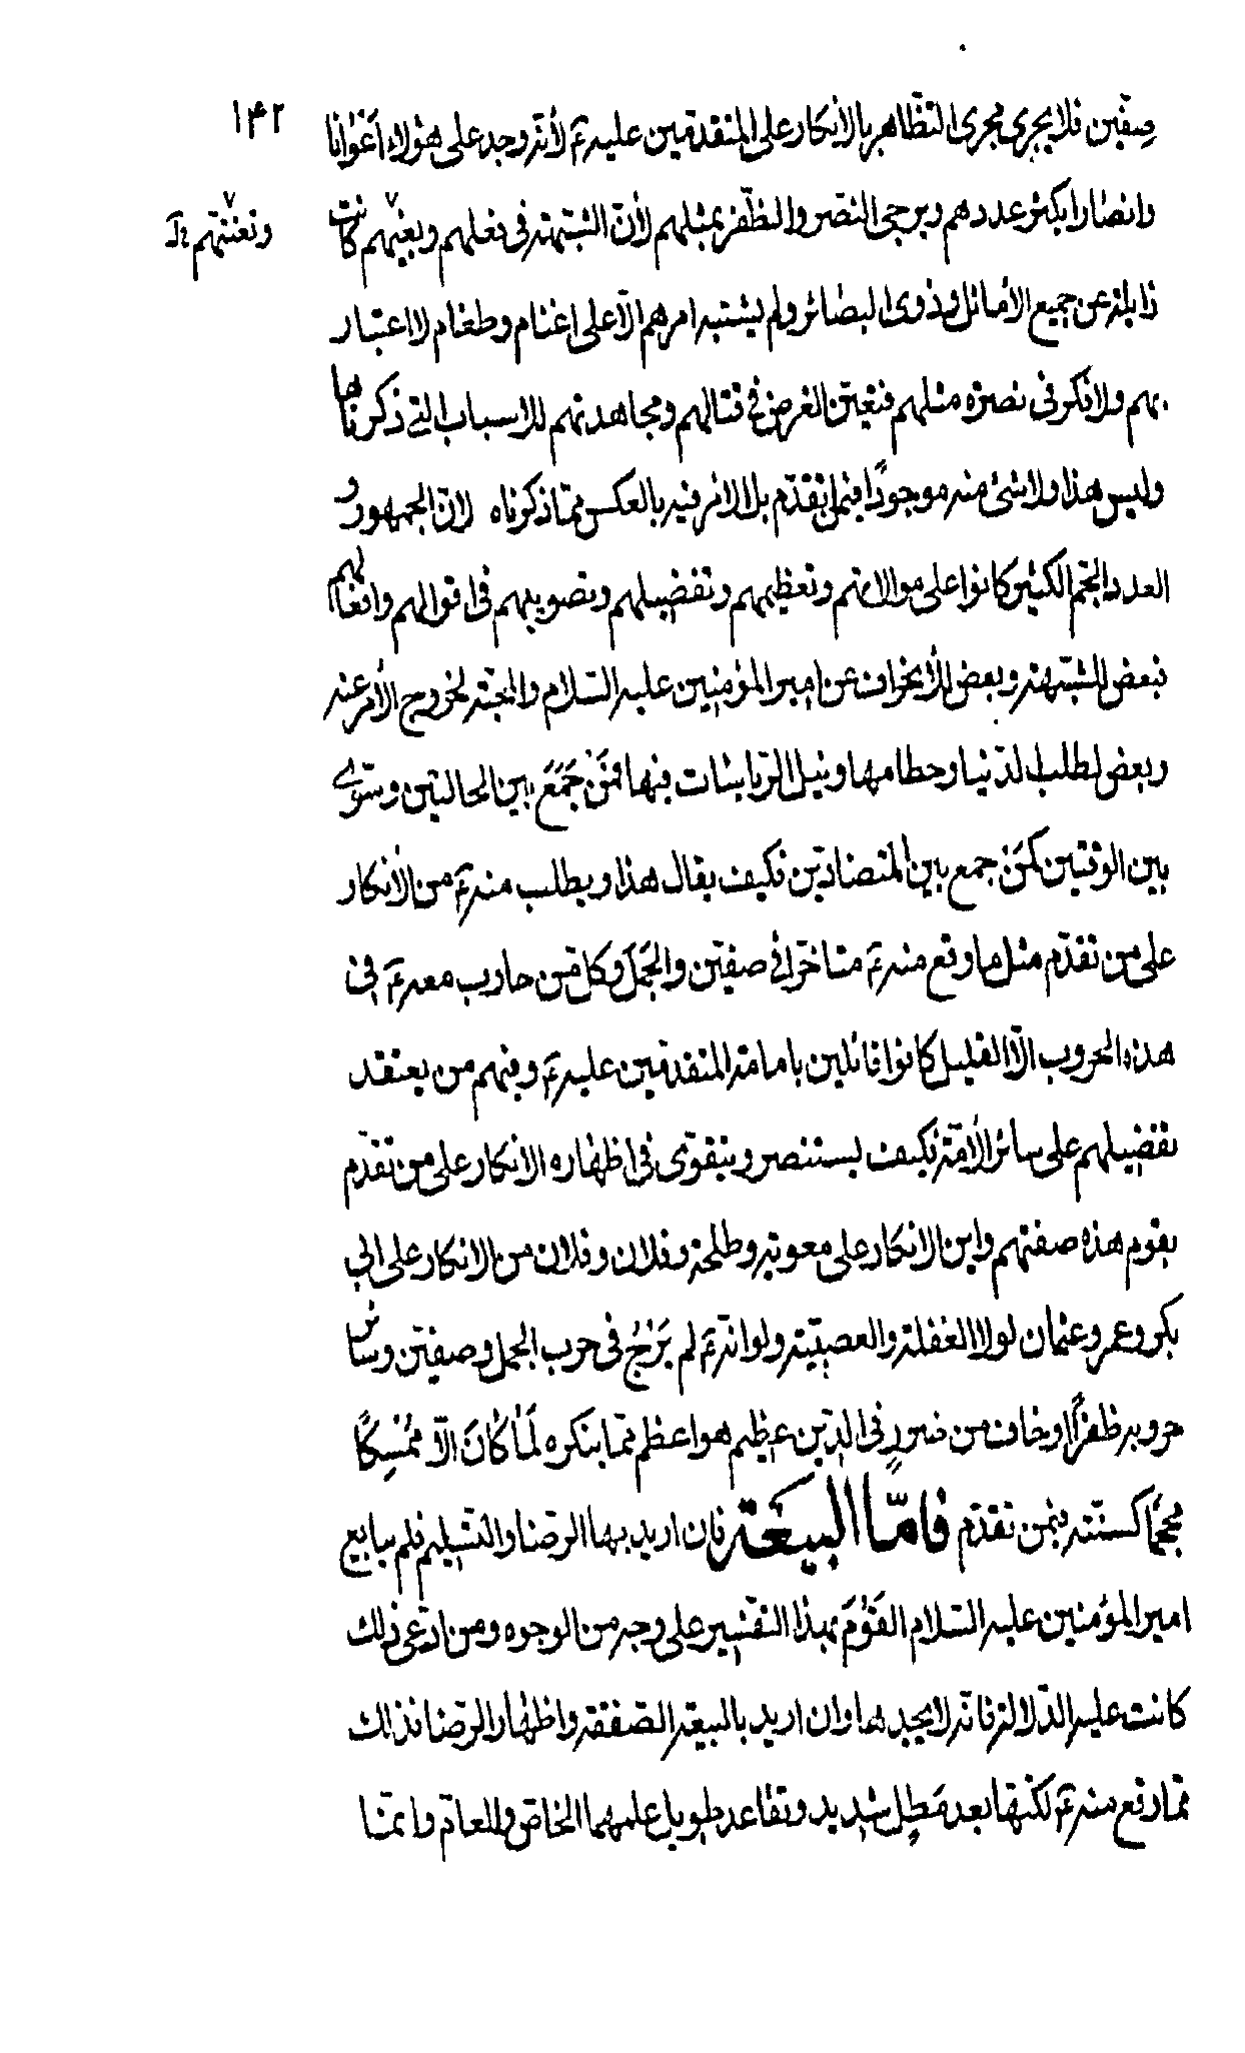 ١٤٢
صفّين فلا يجرى مجرى التظّاهر بالأنكار على المتقدّمين عليه ع لأنّه وجد على هؤلاء اَعْوانا
وانصارا يكثر عددهم ويرجى النّصر والظّفر بمثلهم لأنّ الشّبهة فى فعلهم وبغيهم كانت
وتعنّتهم
زايلة عن جميع الأماثل وذوى البصائر ولم يشتبه امرهم الّا على اغنام وطغام لا اعتبار
بهم ولا فكر فى نصرة مثلهم فتعيّن الغرض فى قتالهم ومجاهدتهم للاسباب التى ذكرناها
وليس هذا ولا شئ منه موجودًا فيما تقدّم بل الامر فيه بالعكس ممّا ذكرناه لانّ الجمهور و
العدد الجمّ الكثير كانوا على موالاتهم وتعظيمهم وتفضيلهم وتصويبهم فى اقوالهم وافعالهم
فبعض للشّبهة وبعض للأنحراف عن امير المؤمنين عليه السّلام والمحبّة لخروج الأمر عنه
وبعض لطلب الدّنيا وحطامها ونيل الرّياسات فيها فمَنْ جَمَعَ بين الحالتين وسوّى
بين الوقتين كمَنْ جمع بين المتضادّين فكيف يقال هذا ويطلب منه ع من الأنكار
على من تقدّم مثل ما وقع منه ع متأخّرا فى صفّين والجَمَل وكلّ من حارب معه ع فى
هذه الحروب الّا القليل كانوا قائلين بامامة المتقدّمين عليه ع وفيهم من يعتقد
تفضيلهم على سائر الأمّة فكيف يستنصر ويتقوّى فى اظهاره الانكار على من تقدّم
بقوم هذه صفتهم واين الانكار على معوية وطلحة وفلان وفلان من الانكار على ابى
بكر وعمر وعثمان لولا الغفلة والعصبيّة ولو انّه ع لم يَرْجُ فى حرب الجمل وصفّين وسائر
حروبه ظفرًا وخاف من ضررٍ فى الدّين عظيم هو اعظم ممّا ينكره لَمَا كَانَ الّا مُمْسِكًا
محجمًا كسنّته فيمن تقدّم فامّا البيعَة فان اريد بها الرّضا والتّسليم فلم يبايع
امير المؤمنين عليه السّلام القَوْمَ بهذا التّفسير على وجه من الوجوه ومن ادّعى ذلك
كانت عليه الدّلالة فانّه لا يجدها وان اريد بالبيعة الصّفقة واظهار الرّضا فذلك
ممّا وقع منه ع لكنّها بعد مَطلٍ شديد وتقاعد طويل علمهما الخاصّ والعامّ وانّما